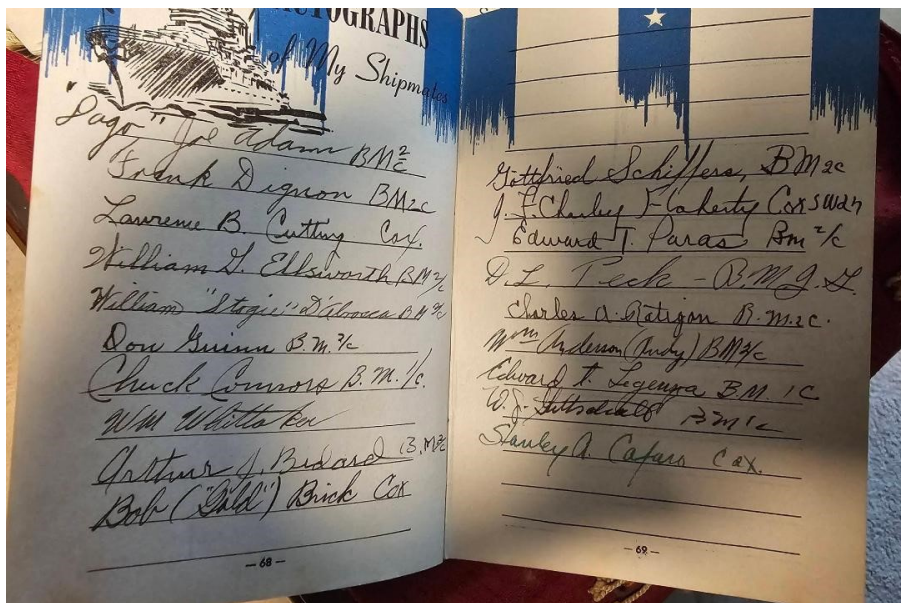 AUTOGRAPHS
of My Shipmates
"Dago" Joe Adam BM 2/c
Frank Dignon BM2c
Lawrence B. Cutting Cox.
William G. Ellsworth BM 2/c
William "Stogie" D'Abrosca BM 2/c
Don Guinn B.M. 2/c
Chuck Connors B.M. 1/c.
WM Whittaker
Arthur J. Bedard B.M 2/c
Bob ("Gold") Brick Cox
— 68 —
Gottfried Schiffers, BM2c
J. F. Charley Flaherty Cox
Edward T. Paras Bm 2/c
D. L. Peck -
Charles A. Ratigan B.M.2c.
Wm Anderson (Andy) BM 2/c
Edward T. Legenza B.M. 1C
W. J. BM1c
Stanley A. Cafaro Cox.
— 69 —